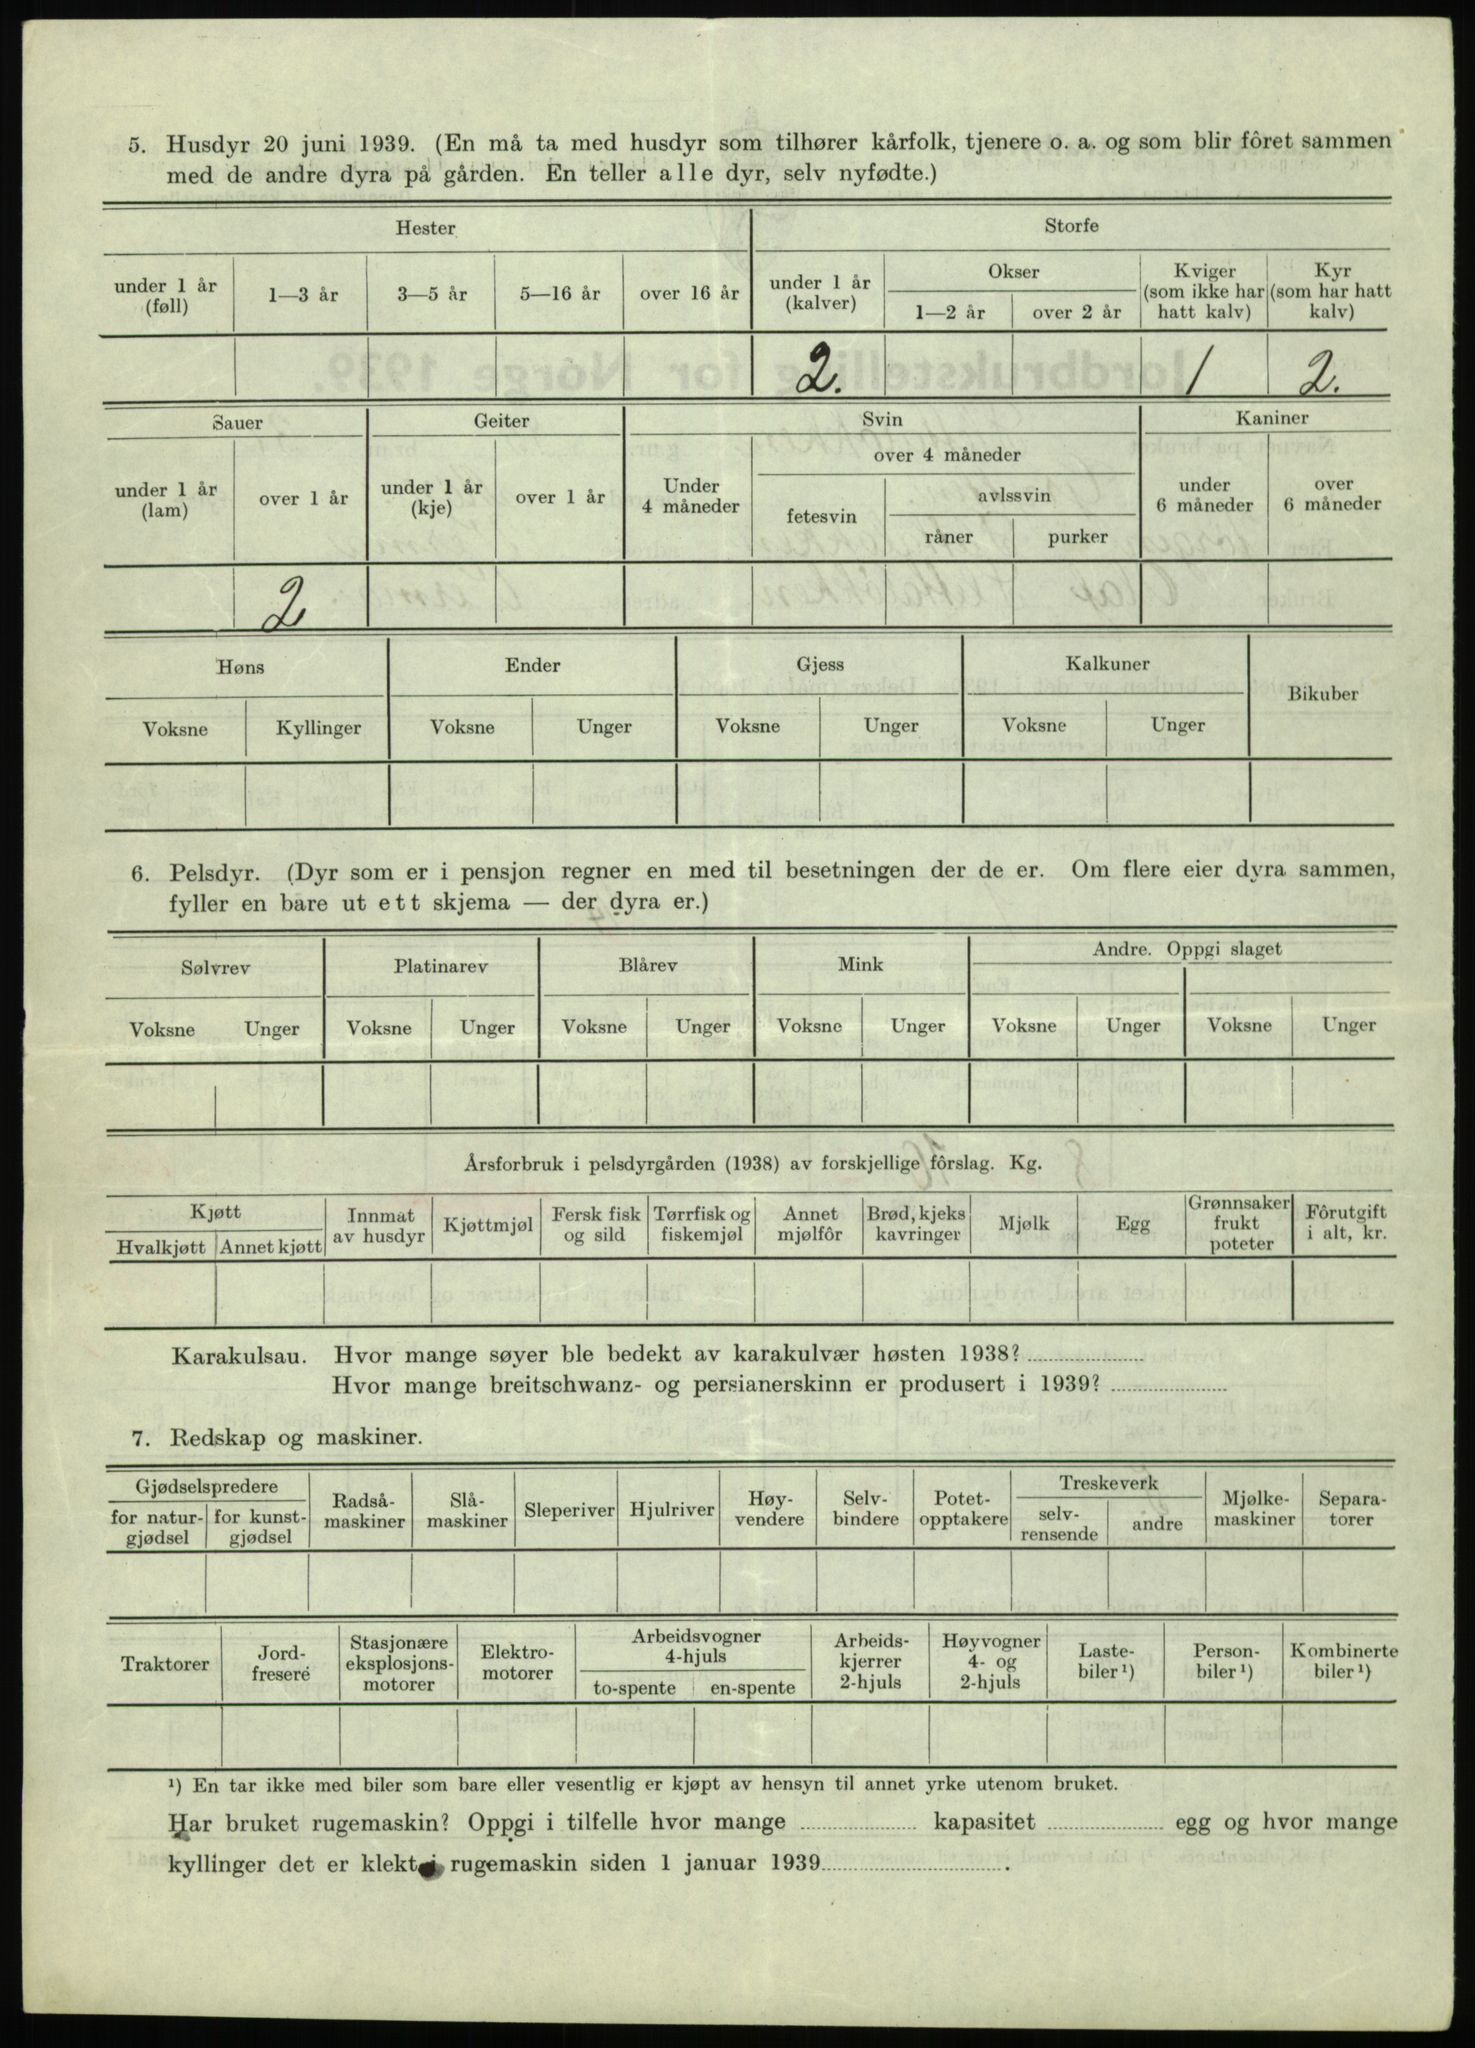 5. Husdyr 20 juni 1939. (En må ta med husdyr som tilhører kårfolk, tjenere o. a. og som blir fôret sammen
med de andre dyra på gården. En teller alle dyr, selv nyfødte.)
Hester Storfe
under 1 år (føll) 1—3 år 3—5 år 5—16 år over 16 år under 1 år (kalver) Okser 1—2 år over 2 år Kviger (som ikke har hatt kalv) Kyr (som har hatt kalv)
2. 1 2.
Sauer Geiter Svin Kaniner
under 1 år (lam) over 1 år under 1 år (kje) over 1 år Under 4 måneder over 4 måneder fetesvin avlssvin råner purker under 6 måneder over 6 måneder
2
Høns Ender Gjess Kalkuner Bikuber
Voksne Kyllinger Voksne Unger Voksne Unger Voksne Unger
6. Pelsdyr. (Dyr som er i pensjon regner en med til besetningen der de er. Om flere eier dyra sammen,
fyller en bare ut ett skjema — der dyra er.)
Sølvrev Platinarev Blårev Mink Andre. Oppgi slaget
Voksne Unger Voksne Unger Voksne Unger Voksne Unger Voksne Unger Voksne Unger
Årsforbruk i pelsdyrgården (1938) av forskjellige fôrslag. Kg.
Kjøtt Hvalkjøtt Annet kjøtt Innmat av husdyr Kjøttmjøl Fersk fisk og sild Tørrfisk og fiskemjøl Annet mjølfôr Brød, kjeks kavringer Mjølk Egg Grønnsaker frukt poteter Fôrutgift i alt, kr.
Karakulsau. Hvor mange søyer ble bedekt av karakulvær høsten 1938?
Hvor mange breitschwanz- og persianerskinn er produsert i 1939?
7. Redskap og maskiner.
Gjødselspredere for natur-gjødsel for kunst-gjødsel Radså-maskiner Slå-maskiner Sleperiver Hjulriver Høy-vendere Selv-bindere Potet-opptakere Treskeverk selv-rensende andre Mjølke-maskiner Separa-torer
Traktorer Jord-fresere Stasjonære eksplosjons-motorer Elektro-motorer Arbeidsvogner 4-hjuls to-spente en-spente Arbeids-kjerrer 2-hjuls Høyvogner 4- og 2-hjuls Laste-biler ¹) Person-biler ¹) Kombinerte biler ¹)
¹) En tar ikke med biler som bare eller vesentlig er kjøpt av hensyn til annet yrke utenom bruket.
Har bruket rugemaskin? Oppgi i tilfelle hvor mange kapasitet egg og hvor mange
kyllinger det er klekt i rugemaskin siden 1 januar 1939 .